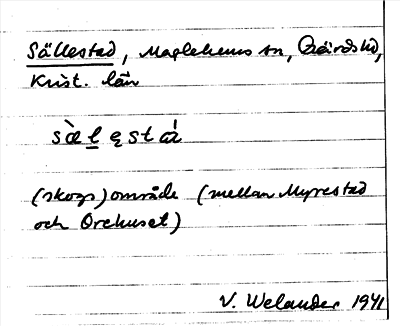 Sällestad, Maglehems sn, Gärds hd,
Krist. län
sæ̀lęstá
(skogs)område (mellan Myrestad
och Orehuset)
V. Welander 1941